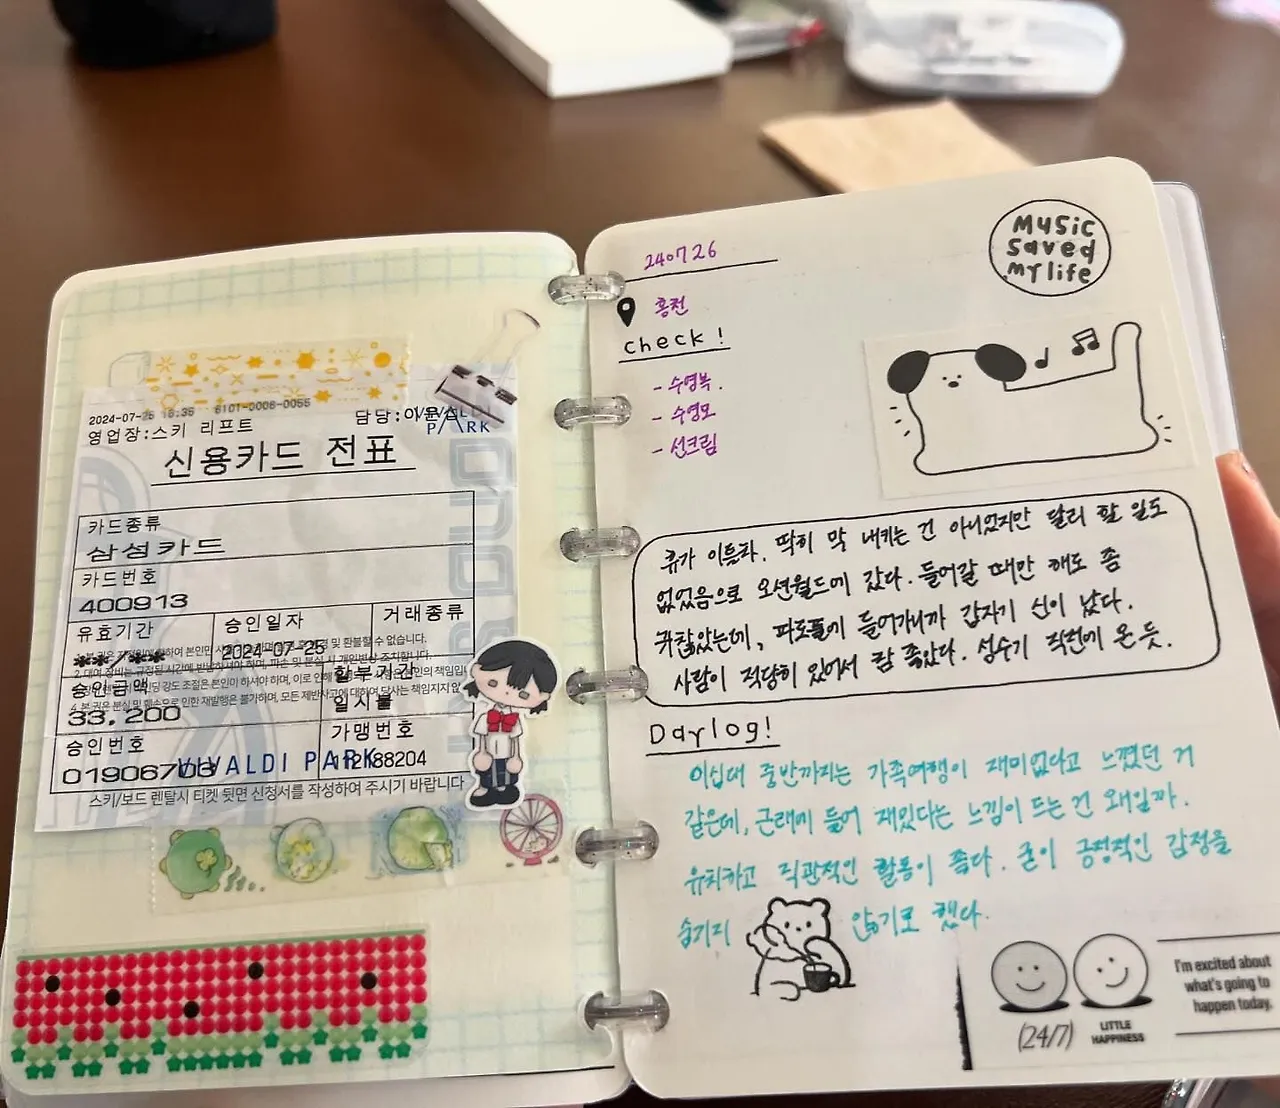 2024-07-25 16:36 6101-0006-0055
담당:이윤
영업장:스키 리프트
VIVALDI
PARK
신용카드 전표
카드종류
삼성카드
카드번호
400913
유효기간 승인일자 거래종류
**/** 2024-07-25
승인금액 할부기간
33,200 일시불
승인번호 가맹번호
01906703
VIVALDI PARK
스키/보드 렌탈시 티켓 뒷면 신청서를 작성하여 주시기 바랍니다
240726
홍천
check!
- 수영복.
- 수영모
- 선크림
MUSIC
saved
my life
휴가 이틀차. 딱히 막 내키는 건 아니었지만 달리 할 일도
없었음으로 오션월드에 갔다. 들어갈 때만 해도 좀
귀찮았는데, 파도풀에 들어가니까 갑자기 신이 났다.
사람이 적당히 있어서 참 좋았다. 성수기 직전에 온 듯.
Daylog!
이십대 중반까지는 가족여행이 재미없다고 느꼈던 거
같은데, 근래에 들어 재밌다는 느낌이 드는 건 왜일까.
유치하고 직관적인 활동이 좋다. 굳이 긍정적인 감정을
숨기지 않기로 했다.
(24/7)
LITTLE
HAPPINESS
I'm excited about
what's going to
happen today.